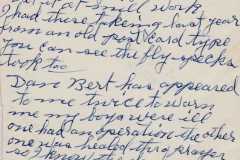 at small work
I had these taken last year
from an old post card type
You can see the fly specks
too
Dave Bert has appeared
to me twice to warn
me my boys were ill
one had an operation the other
one was healed thro prayer
I know